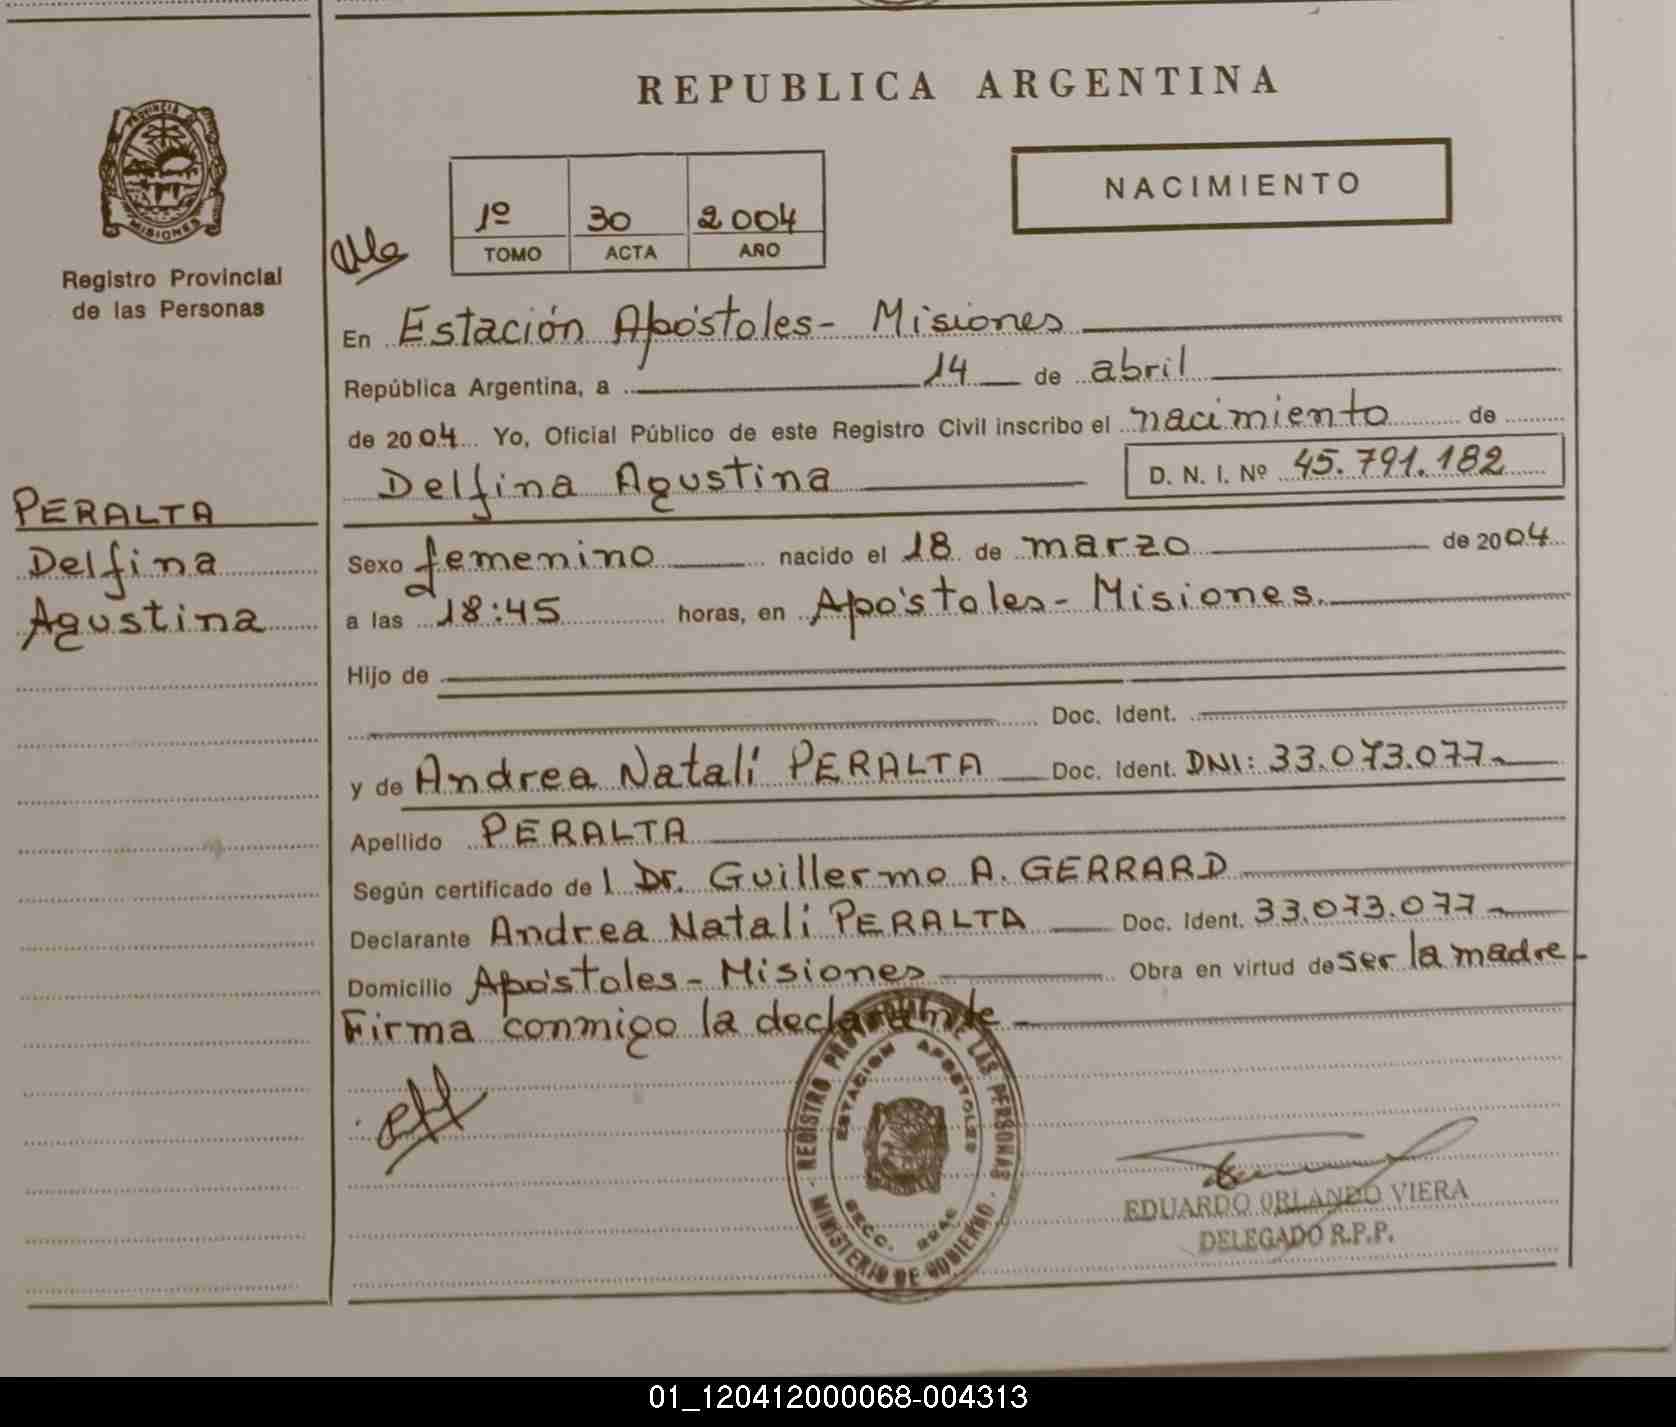 REPUBLICA ARGENTINA
PROVINCIA DE
MISIONES
Registro Provincial
de las Personas
NACIMIENTO
1º 30 2004
TOMO ACTA AÑO
En Estación Apóstoles- Misiones
República Argentina, a 14 de abril
de 2004 Yo, Oficial Público de este Registro Civil inscribo el nacimiento de
Delfina Agustina D. N. I. Nº 45.791.182
PERALTA
Delfina
Agustina
Sexo femenino nacido el 18 de marzo de 2004
a las 18:45 horas, en Apóstoles- Misiones.
Hijo de
Doc. Ident.
y de Andrea Natalí PERALTA Doc. Ident. DNI: 33.073.077-
Apellido PERALTA
Según certificado de l Dr. Guillermo A. GERRARD
Declarante Andrea Natalí PERALTA Doc. Ident. 33.073.077-
Domicilio Apóstoles- Misiones Obra en virtud de ser la madre-
Firma conmigo la declarante-
REGISTRO PROVINCIAL DE LAS PERSONAS
ESTACION APOSTOLES
SECC.
MINISTERIO DE GOBIERNO
EDUARDO ORLANDO VIERA
DELEGADO R.P.P.
01_120412000068-004313